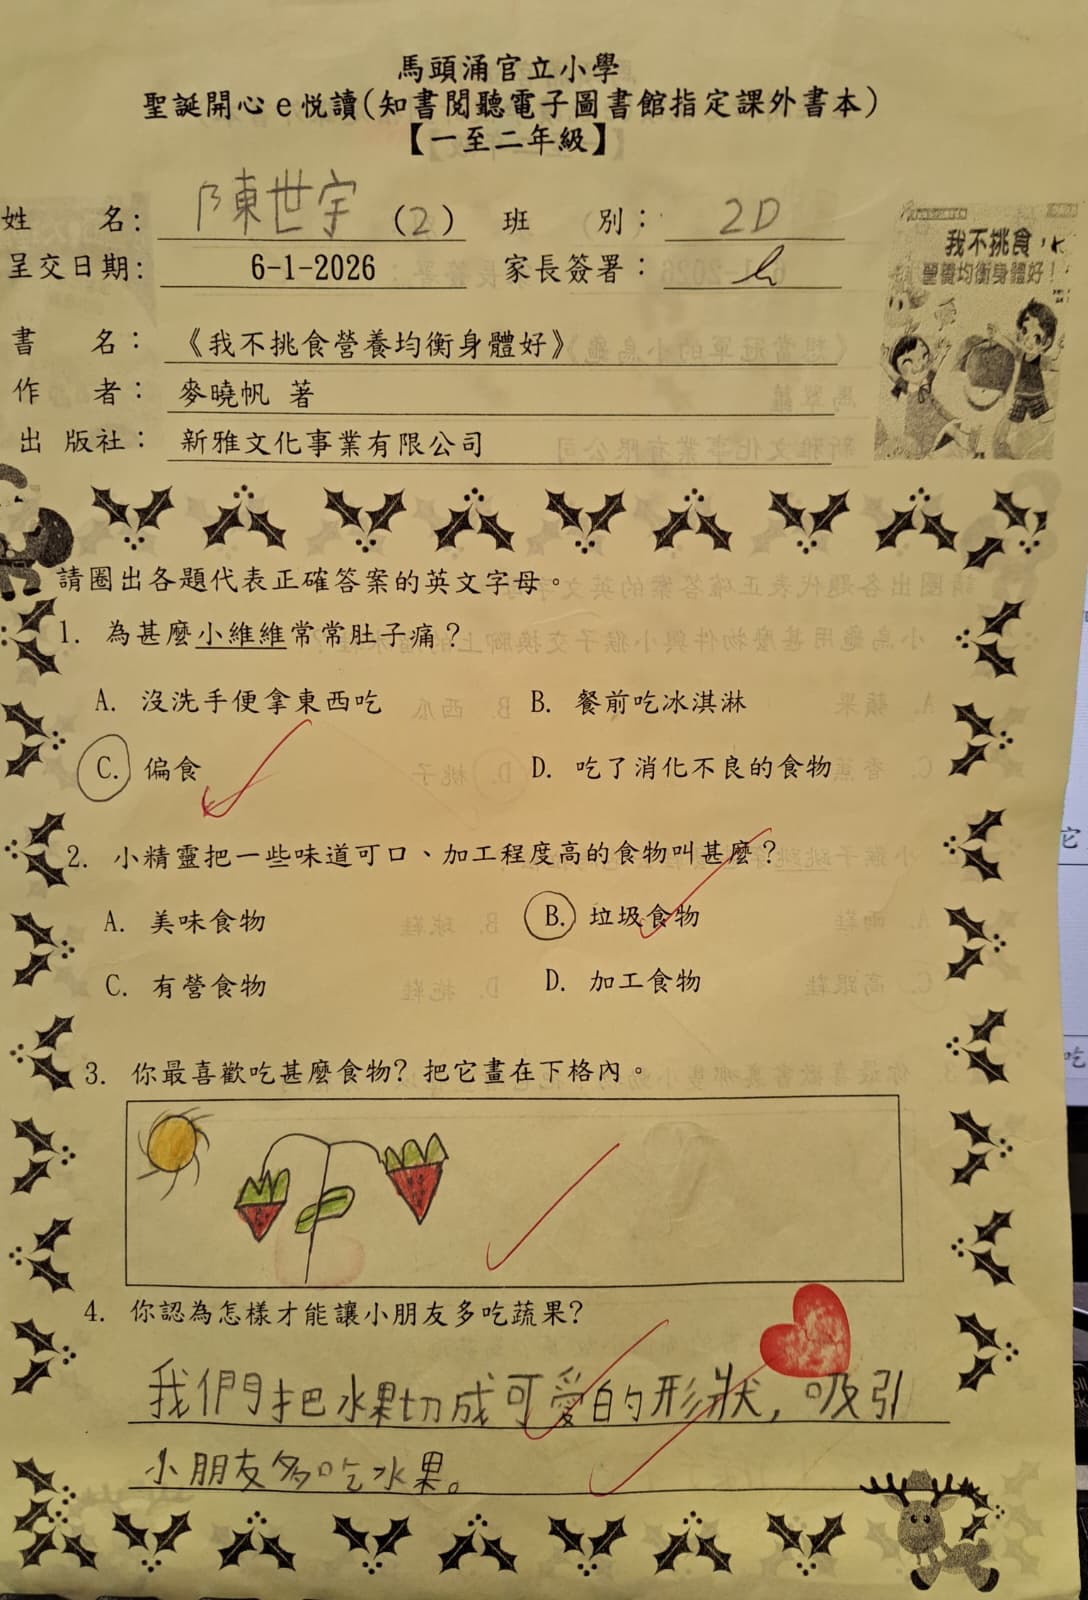 馬頭涌官立小學
聖誕開心e悅讀(知書閱聽電子圖書館指定課外書本)
【一至二年級】
姓 名： 陳世宇 (2) 班 別： 2D
呈交日期： 6-1-2026 家長簽署：
書 名： 《我不挑食營養均衡身體好》
作 者： 麥曉帆 著
出 版社： 新雅文化事業有限公司
我不挑食，
營養均衡身體好！
請圈出各題代表正確答案的英文字母。
1. 為甚麼小維維常常肚子痛？
A. 沒洗手便拿東西吃 B. 餐前吃冰淇淋
C. 偏食 D. 吃了消化不良的食物
2. 小精靈把一些味道可口、加工程度高的食物叫甚麼？
A. 美味食物 B. 垃圾食物
C. 有營食物 D. 加工食物
3. 你最喜歡吃甚麼食物？把它畫在下格內。
4. 你認為怎樣才能讓小朋友多吃蔬果？
我們把水果切成可愛的形狀，吸引
小朋友多吃水果。